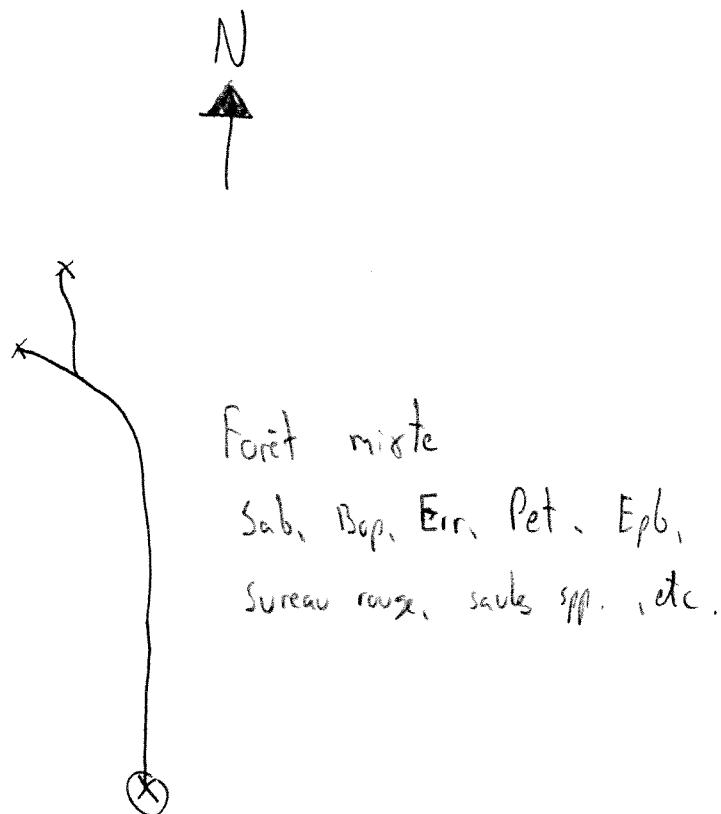 N
Forêt mixte
Sab, Bop, Err, Pet, Epb,
Sureau rouge, saules spp., etc.